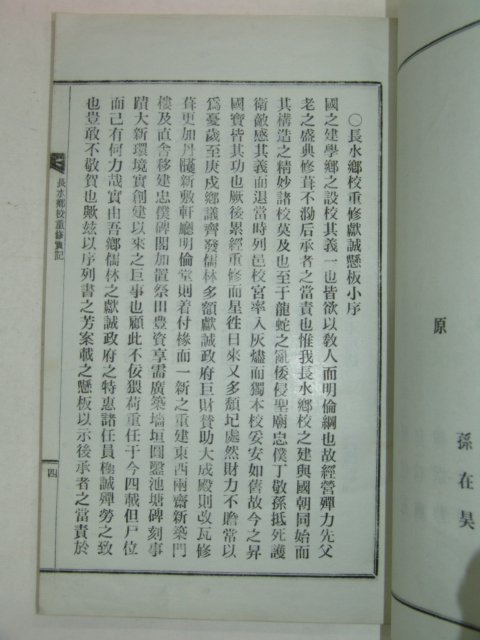 原
孫在昊
○長水鄕校重修獻誠懸板小序
國之建學鄕之設校其義一也皆欲以敎人而明倫綱也故經營殫力先父
老之盛典修葺不泐后承者之當責也惟我長水鄕校之建與國朝同始而
其構造之精妙諸校莫及也至于龍蛇之亂倭侵聖廟忘僕丁敬孫抵死護
衛敵感其義而退當時列邑校宮率入灰燼而獨本校妥安如舊故今之昇
國寶皆其功也厥後累經重修而星徃日來又多頹圮處然財力不贍常以
爲憂歲至庚戌鄕議齊發儒林多額獻誠政府巨財賛助大成殿則改瓦修
葺更加丹雘新敷軒廳明倫堂則着付椽而一新之重建東西兩齋新築門
樓及直舍移建忠僕碑閣加置祭田豊資享需廣築墻垣圓鑿池塘碑刻事
蹟大新環境實創建以來之巨事也顧此不佞猥荷重任于今四載但尸位
而己有何力哉實由吾鄕儒林之獻誠政府之特惠諸任員極誠殫勞之致
也豈敢不敬賀也歟玆以序列書之芳案載之懸板以示後承者之當責於
長水鄕校重修實記
四